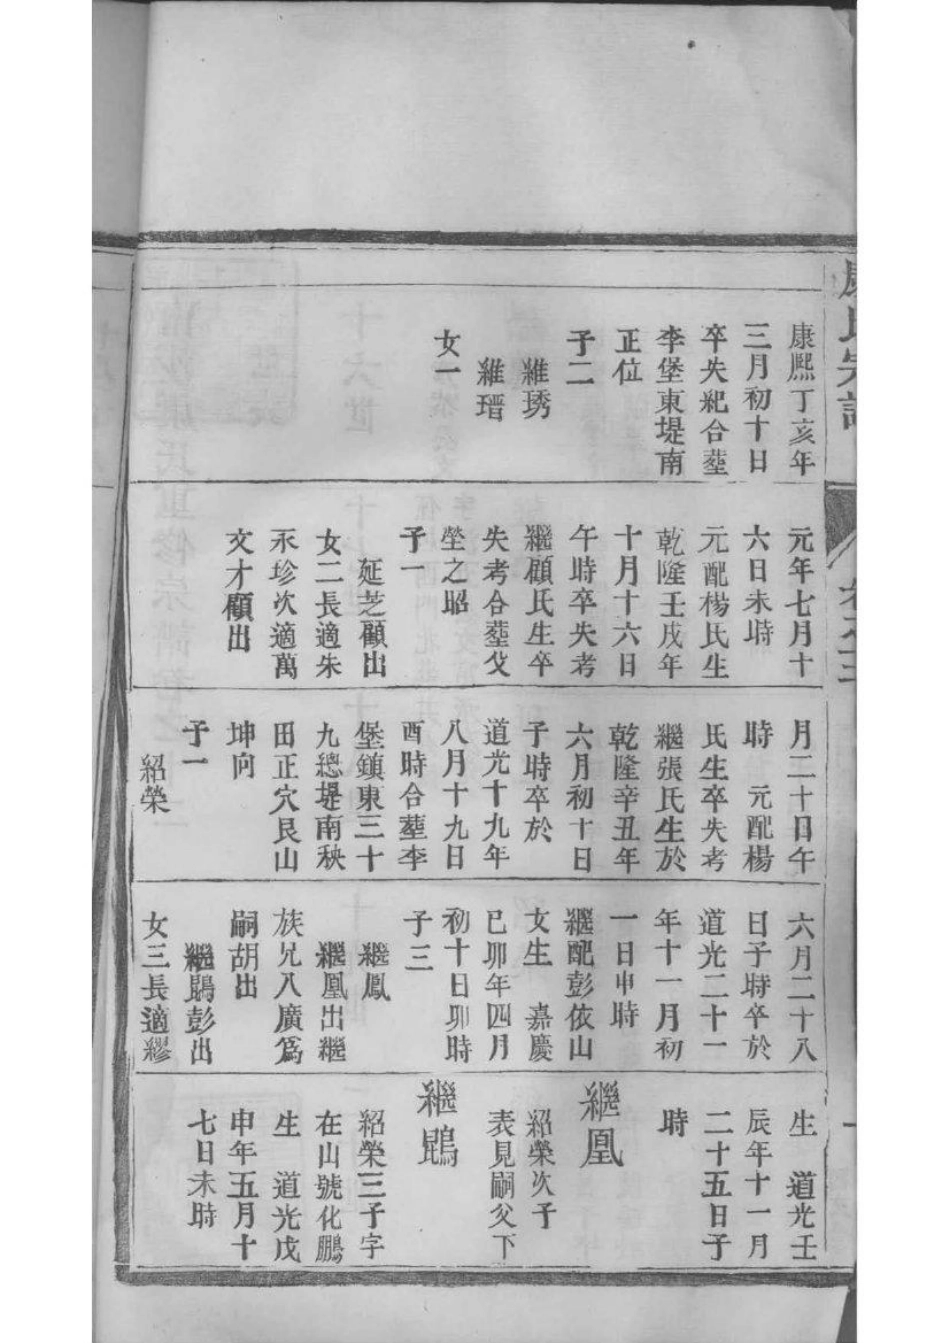 康熙丁亥年
三月初十日
卒失紀合塟
李堡東堤南
正位
子二
維琇
維瑨
女一
元年七月十
六日未時
元配楊氏生
乾隆壬戌年
十月十六日
午時卒失考
繼顧氏生卒
失考合塟父
塋之昭
子一
延芝顧出
女二長適朱
永珍次適萬
文才顧出
月二十日午
時 元配楊
氏生卒失考
繼張氏生於
乾隆辛丑年
六月初十日
子時卒於
道光十九年
八月十九日
酉時合塟李
堡鎮東三十
九總堤南秧
田正穴艮山
坤向
子一
紹榮
六月二十八
日子時卒於
道光二十一
年十一月初
一日申時
繼配彭依山
女生 嘉慶
己卯年四月
初十日卯時
子三
繼鳳
繼凰出繼
族兄入廣為
嗣胡出
繼鵾彭出
女三長適繆
生 道光壬
辰年十一月
二十五日子
時
繼凰
紹榮次子
表見嗣父下
繼鵾
紹榮三子字
在山號化鵬
生 道光戊
申年五月十
七日未時
氏宗譜
卷之三